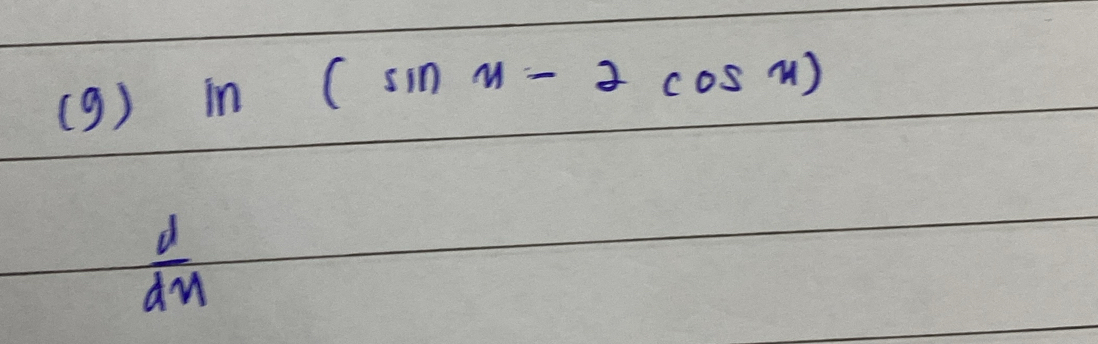 (g) in ( sin x - 2 cos x)
d
dx